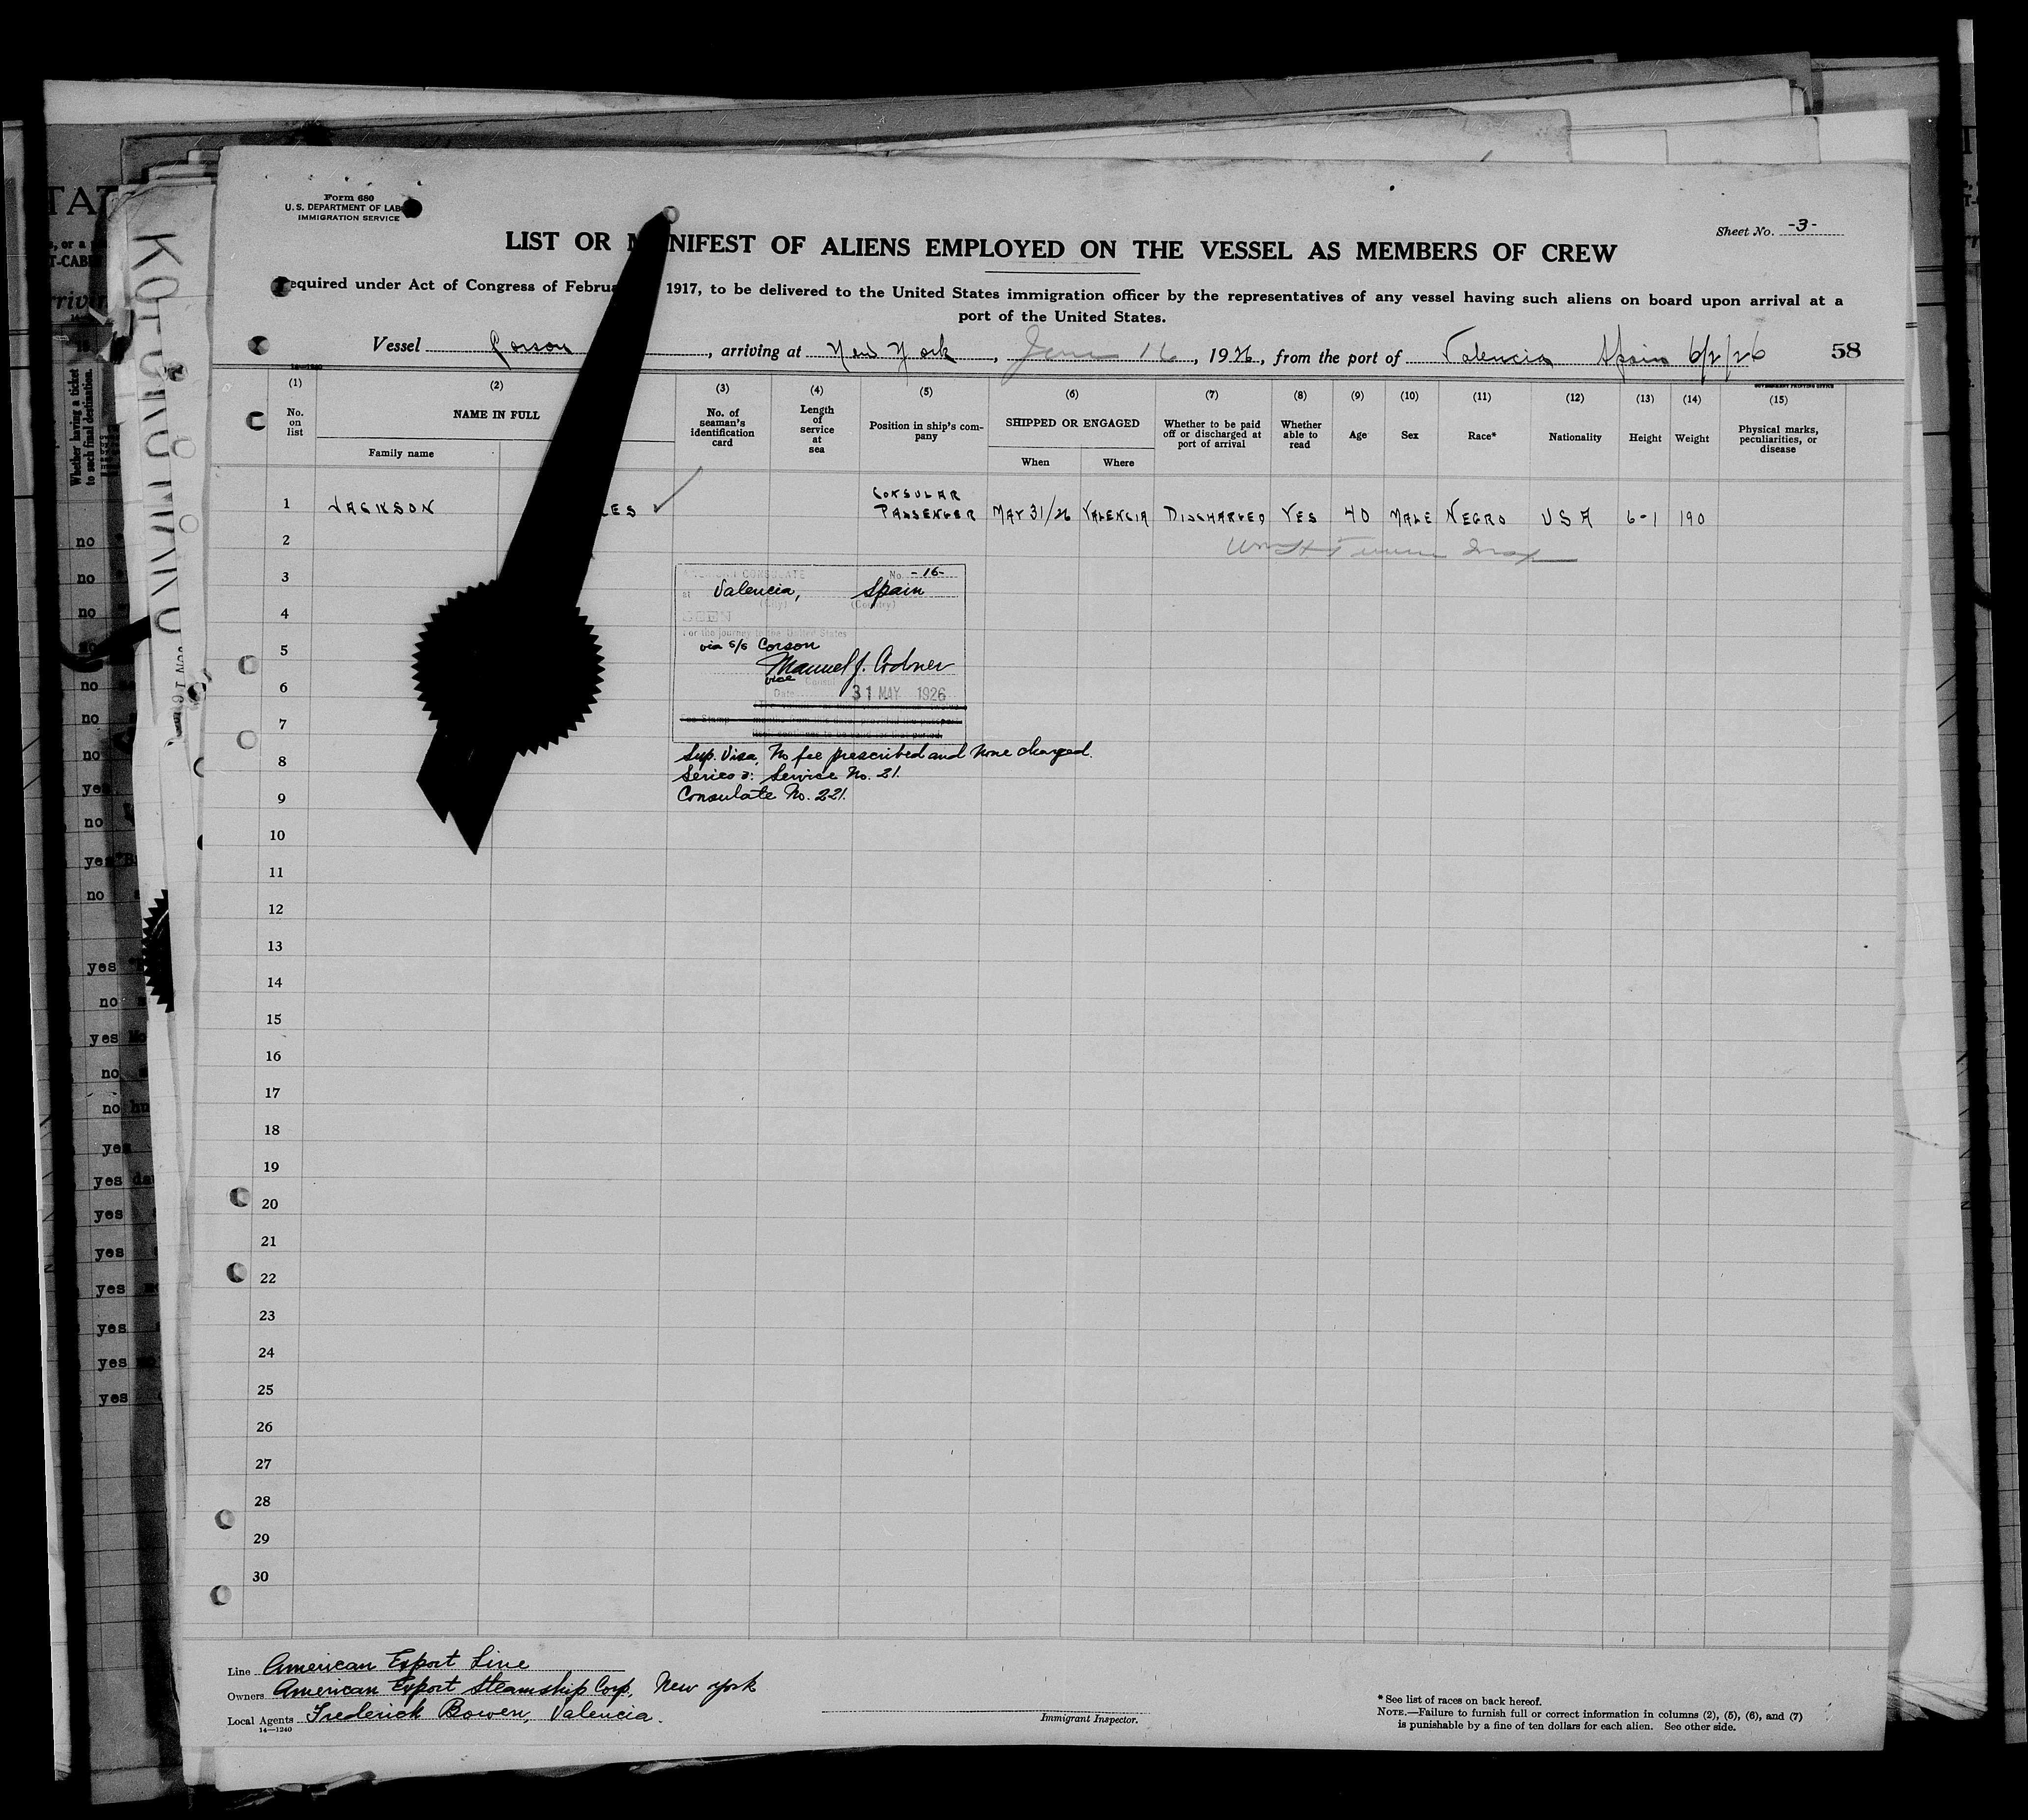 Form 680
U. S. DEPARTMENT OF LAB
IMMIGRATION SERVICE
Sheet No. -3-
LIST OR M NIFEST OF ALIENS EMPLOYED ON THE VESSEL AS MEMBERS OF CREW
equired under Act of Congress of Februa 1917, to be delivered to the United States immigration officer by the representatives of any vessel having such aliens on board upon arrival at a
port of the United States.
Vessel Corson, arriving at New York, June 16, 1926, from the port of Valencia Spain 6/2/26 58
14—1240
GOVERNMENT PRINTING OFFICE
(1) (2) (3) (4) (5) (6) (7) (8) (9) (10) (11) (12) (13) (14) (15)
No. on list
NAME IN FULL
Family name
No. of seaman's identification card
Length of service at sea
Position in ship's company
SHIPPED OR ENGAGED
When Where
Whether to be paid off or discharged at port of arrival
Whether able to read
Age Sex Race* Nationality Height Weight
Physical marks, peculiarities, or disease
CONSULAR
1 JACKSON ES ✓ PASSENGER MAY 31/26 VALENCIA DISCHARGED YES 40 MALE NEGRO USA 6-1 190
2
3
4
5
6
7
8
9
10
11
12
13
14
15
16
17
18
19
20
21
22
23
24
25
26
27
28
29
30
CONSULATE No. -16-
at Valencia, Spain
(City) (Country)
SEEN
For the journey to the United States
via S/S Corson
Manuel J. Codoner
vice Consul
Date 31 MAY 1926
Sup. Visa, No fee prescribed and none charged.
Service No. 21.
Consulate No. 221.
Line American Export Line
Owners American Export Steamship Corp., New York
Local Agents Frederick Bowen, Valencia.
14—1240
Immigrant Inspector.
* See list of races on back hereof.
NOTE.—Failure to furnish full or correct information in columns (2), (5), (6), and (7)
is punishable by a fine of ten dollars for each alien. See other side.